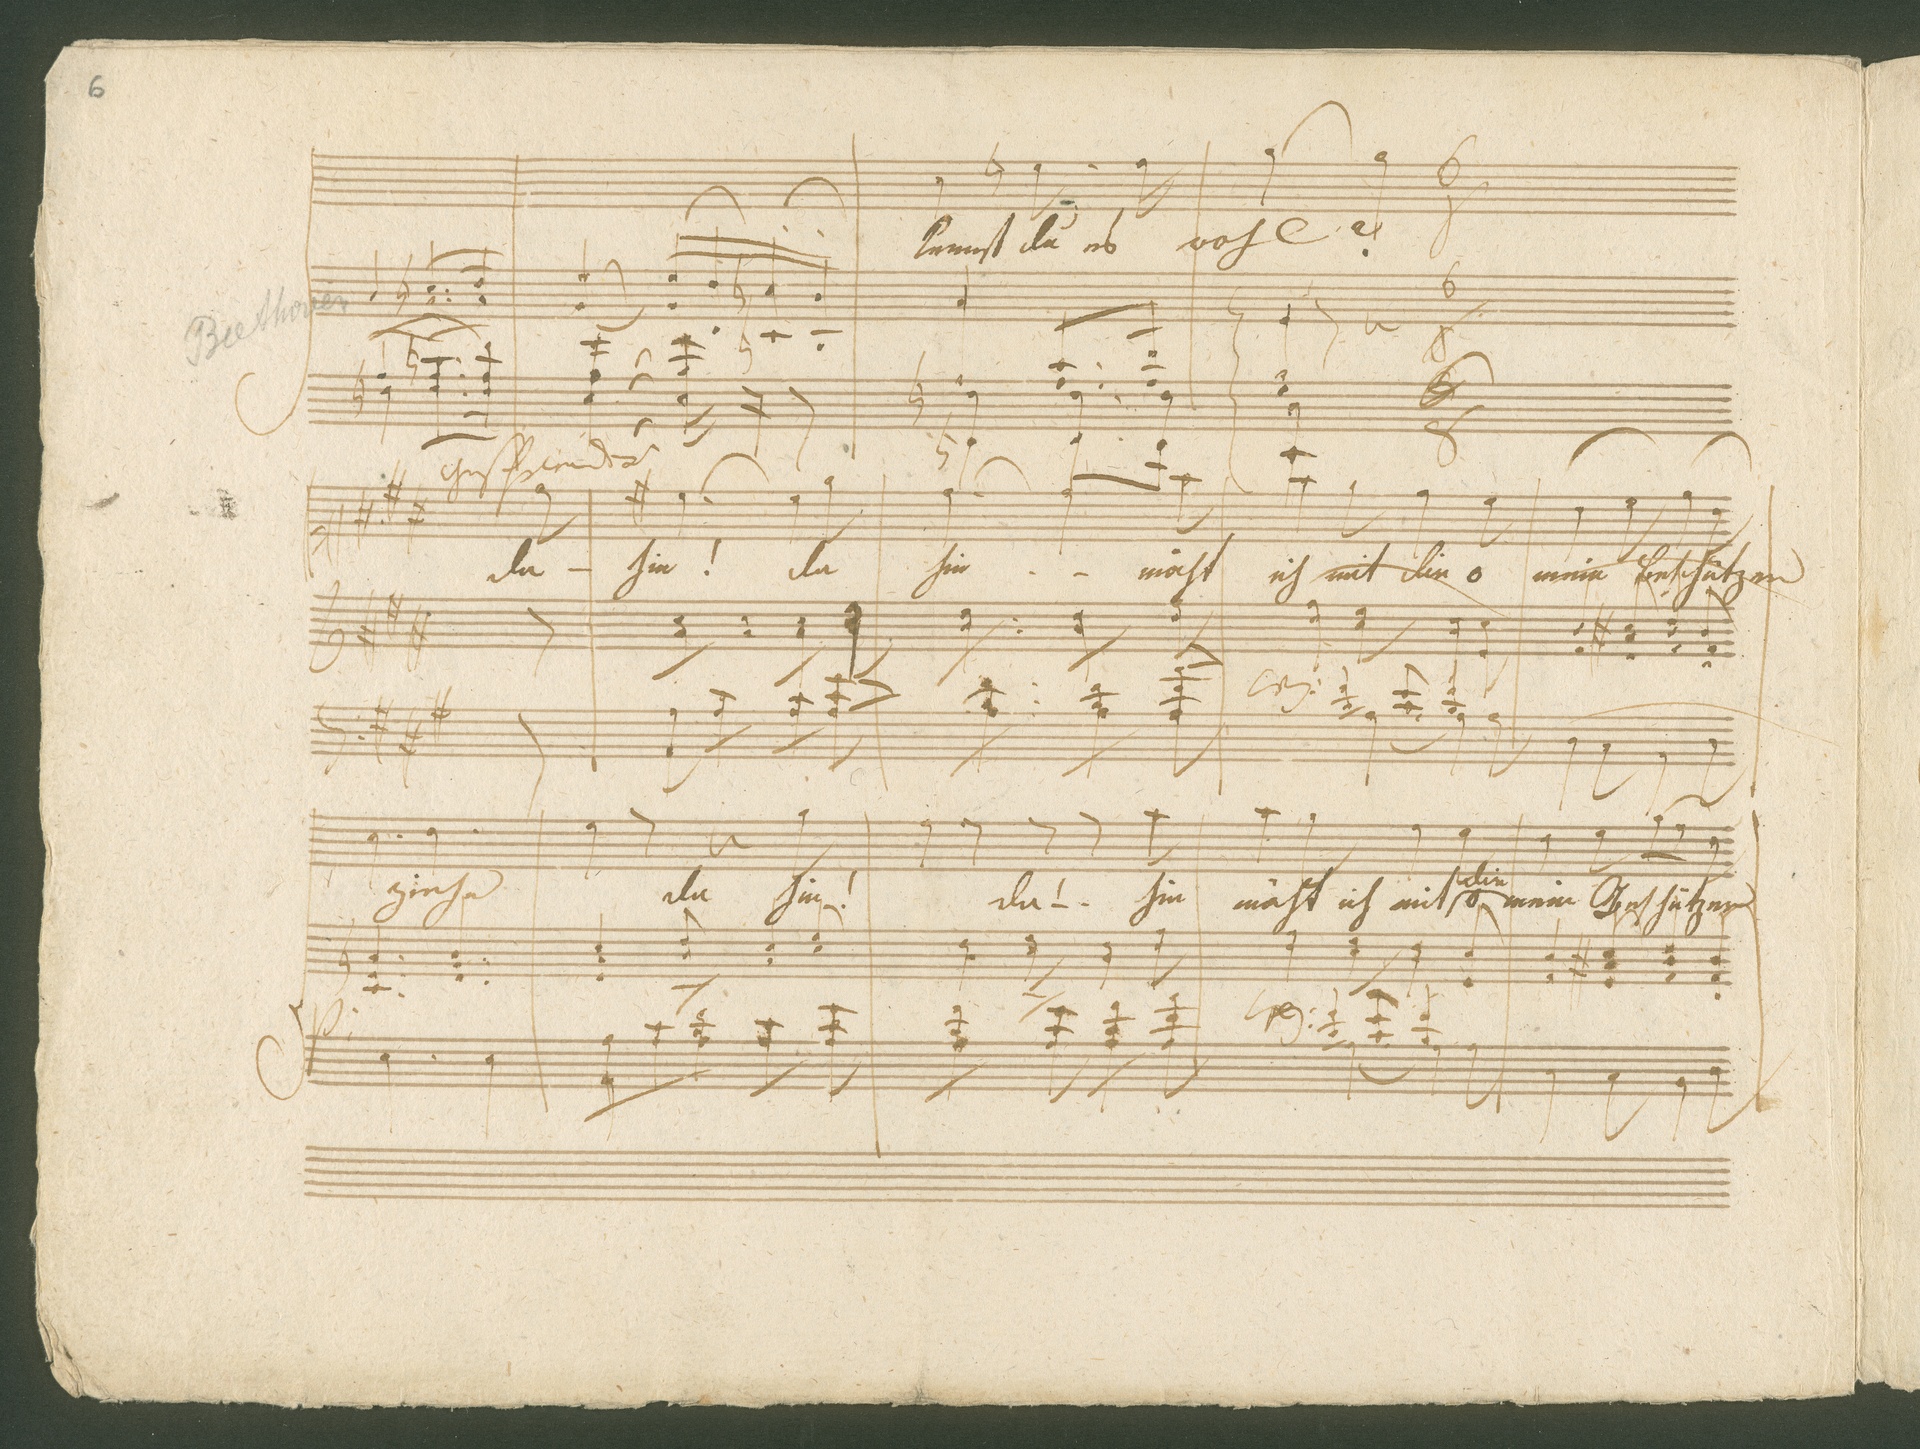 6
kennst du es wohl?
Beethoven
6
8
6
8
6
8
geschwinder
da - hin! da hin - - möcht ich mit dir o mein Beschützer
ziehn da hin -! da! - - hin möcht ich mit dir o mein Beschützer